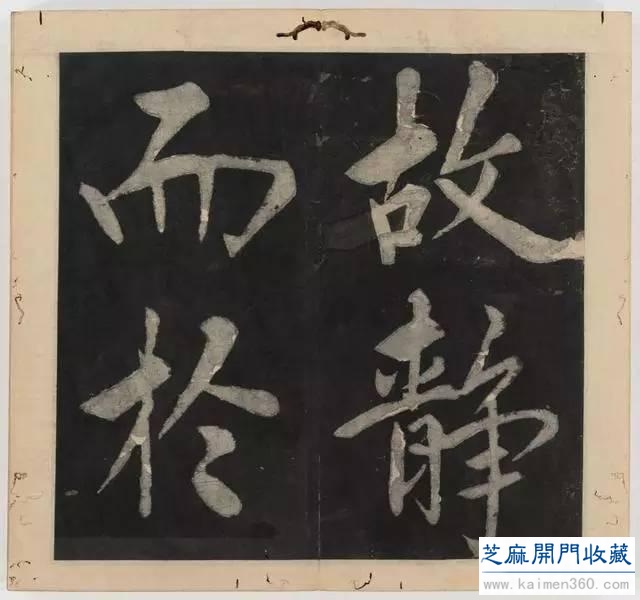 故静
而於
芝麻開門收藏
www.kaimen360.com